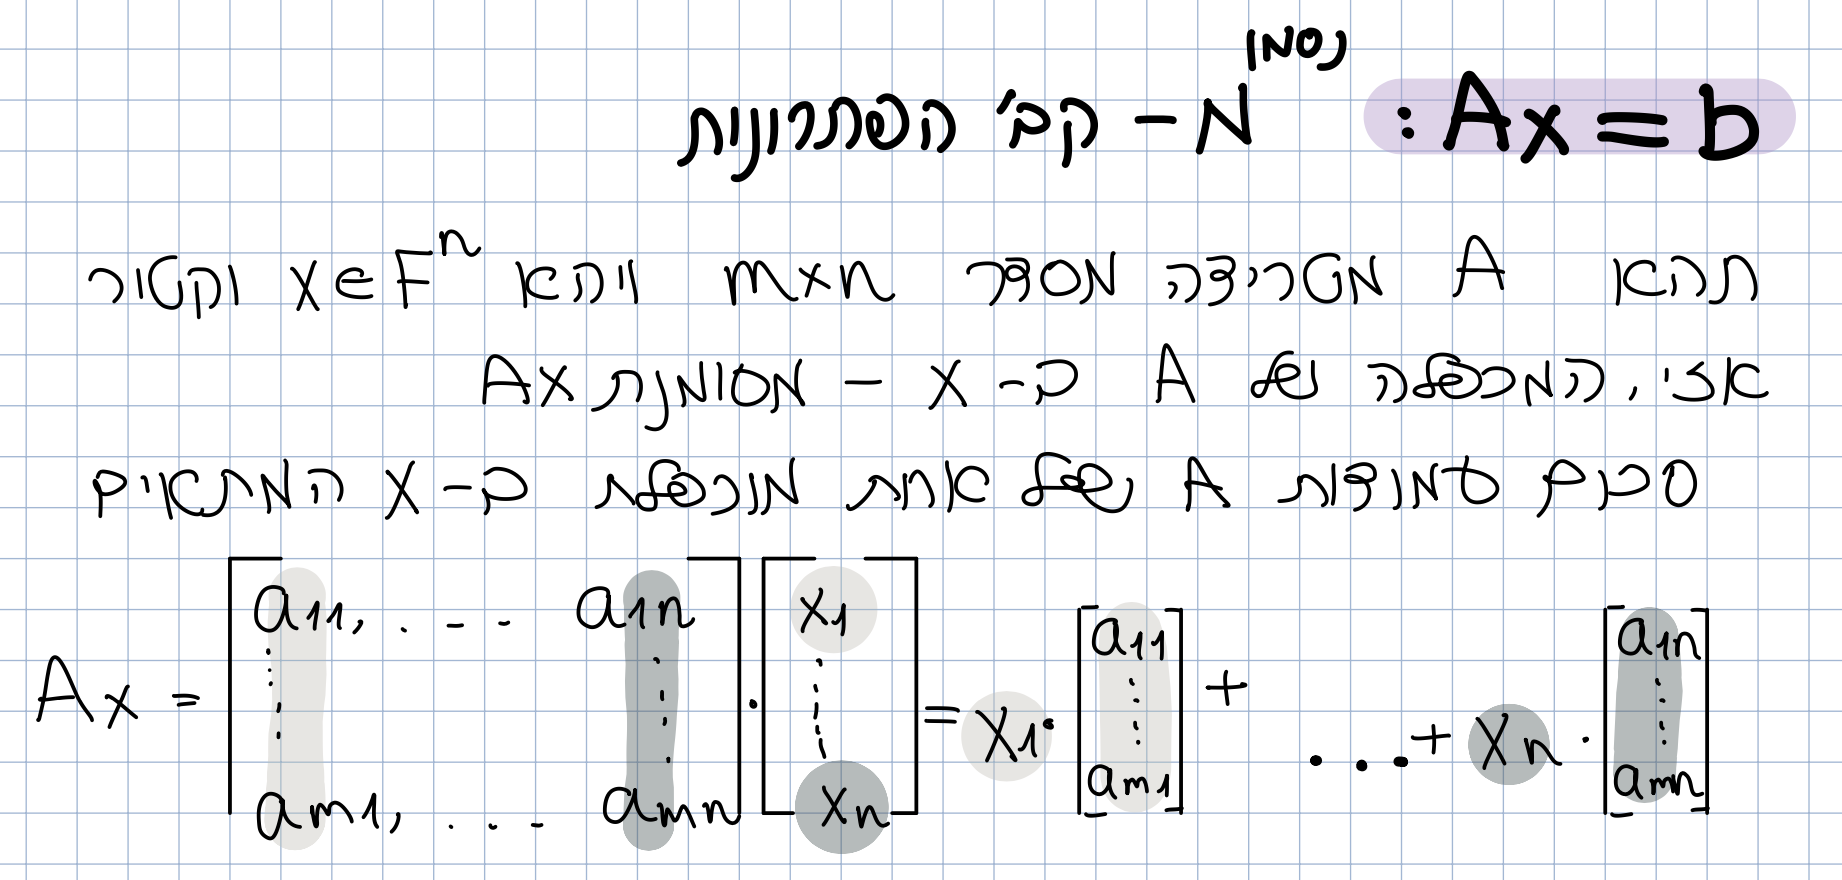 Ax = b : נסמן M - קב' הפתרונות
תהא A מטריצה מסדר m×n ויהא x∈Fⁿ וקטור
אזי, המכפלה של A ב-x - מסומנת Ax
סכום עמודות A שכל אחת מוכפלת ב-x המתאים
Ax = [a11, ... a1n ⋮ ⋮ am1, ... amn] · [x1 ⋮ xn] = x1 · [a11 ⋮ am1] + ... + xn · [a1n ⋮ amn]